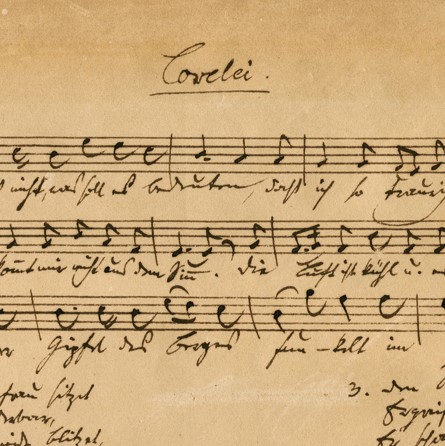 Lorelei.
nicht, was soll es bedeuten, daß ich so trauri
kommt mir nicht aus dem Sinn. Die Luft ist kühl u.
Gipfel des Berges fun-kelt im
frau sitzet
derbar, 3. Den
blitzet, Ergrei